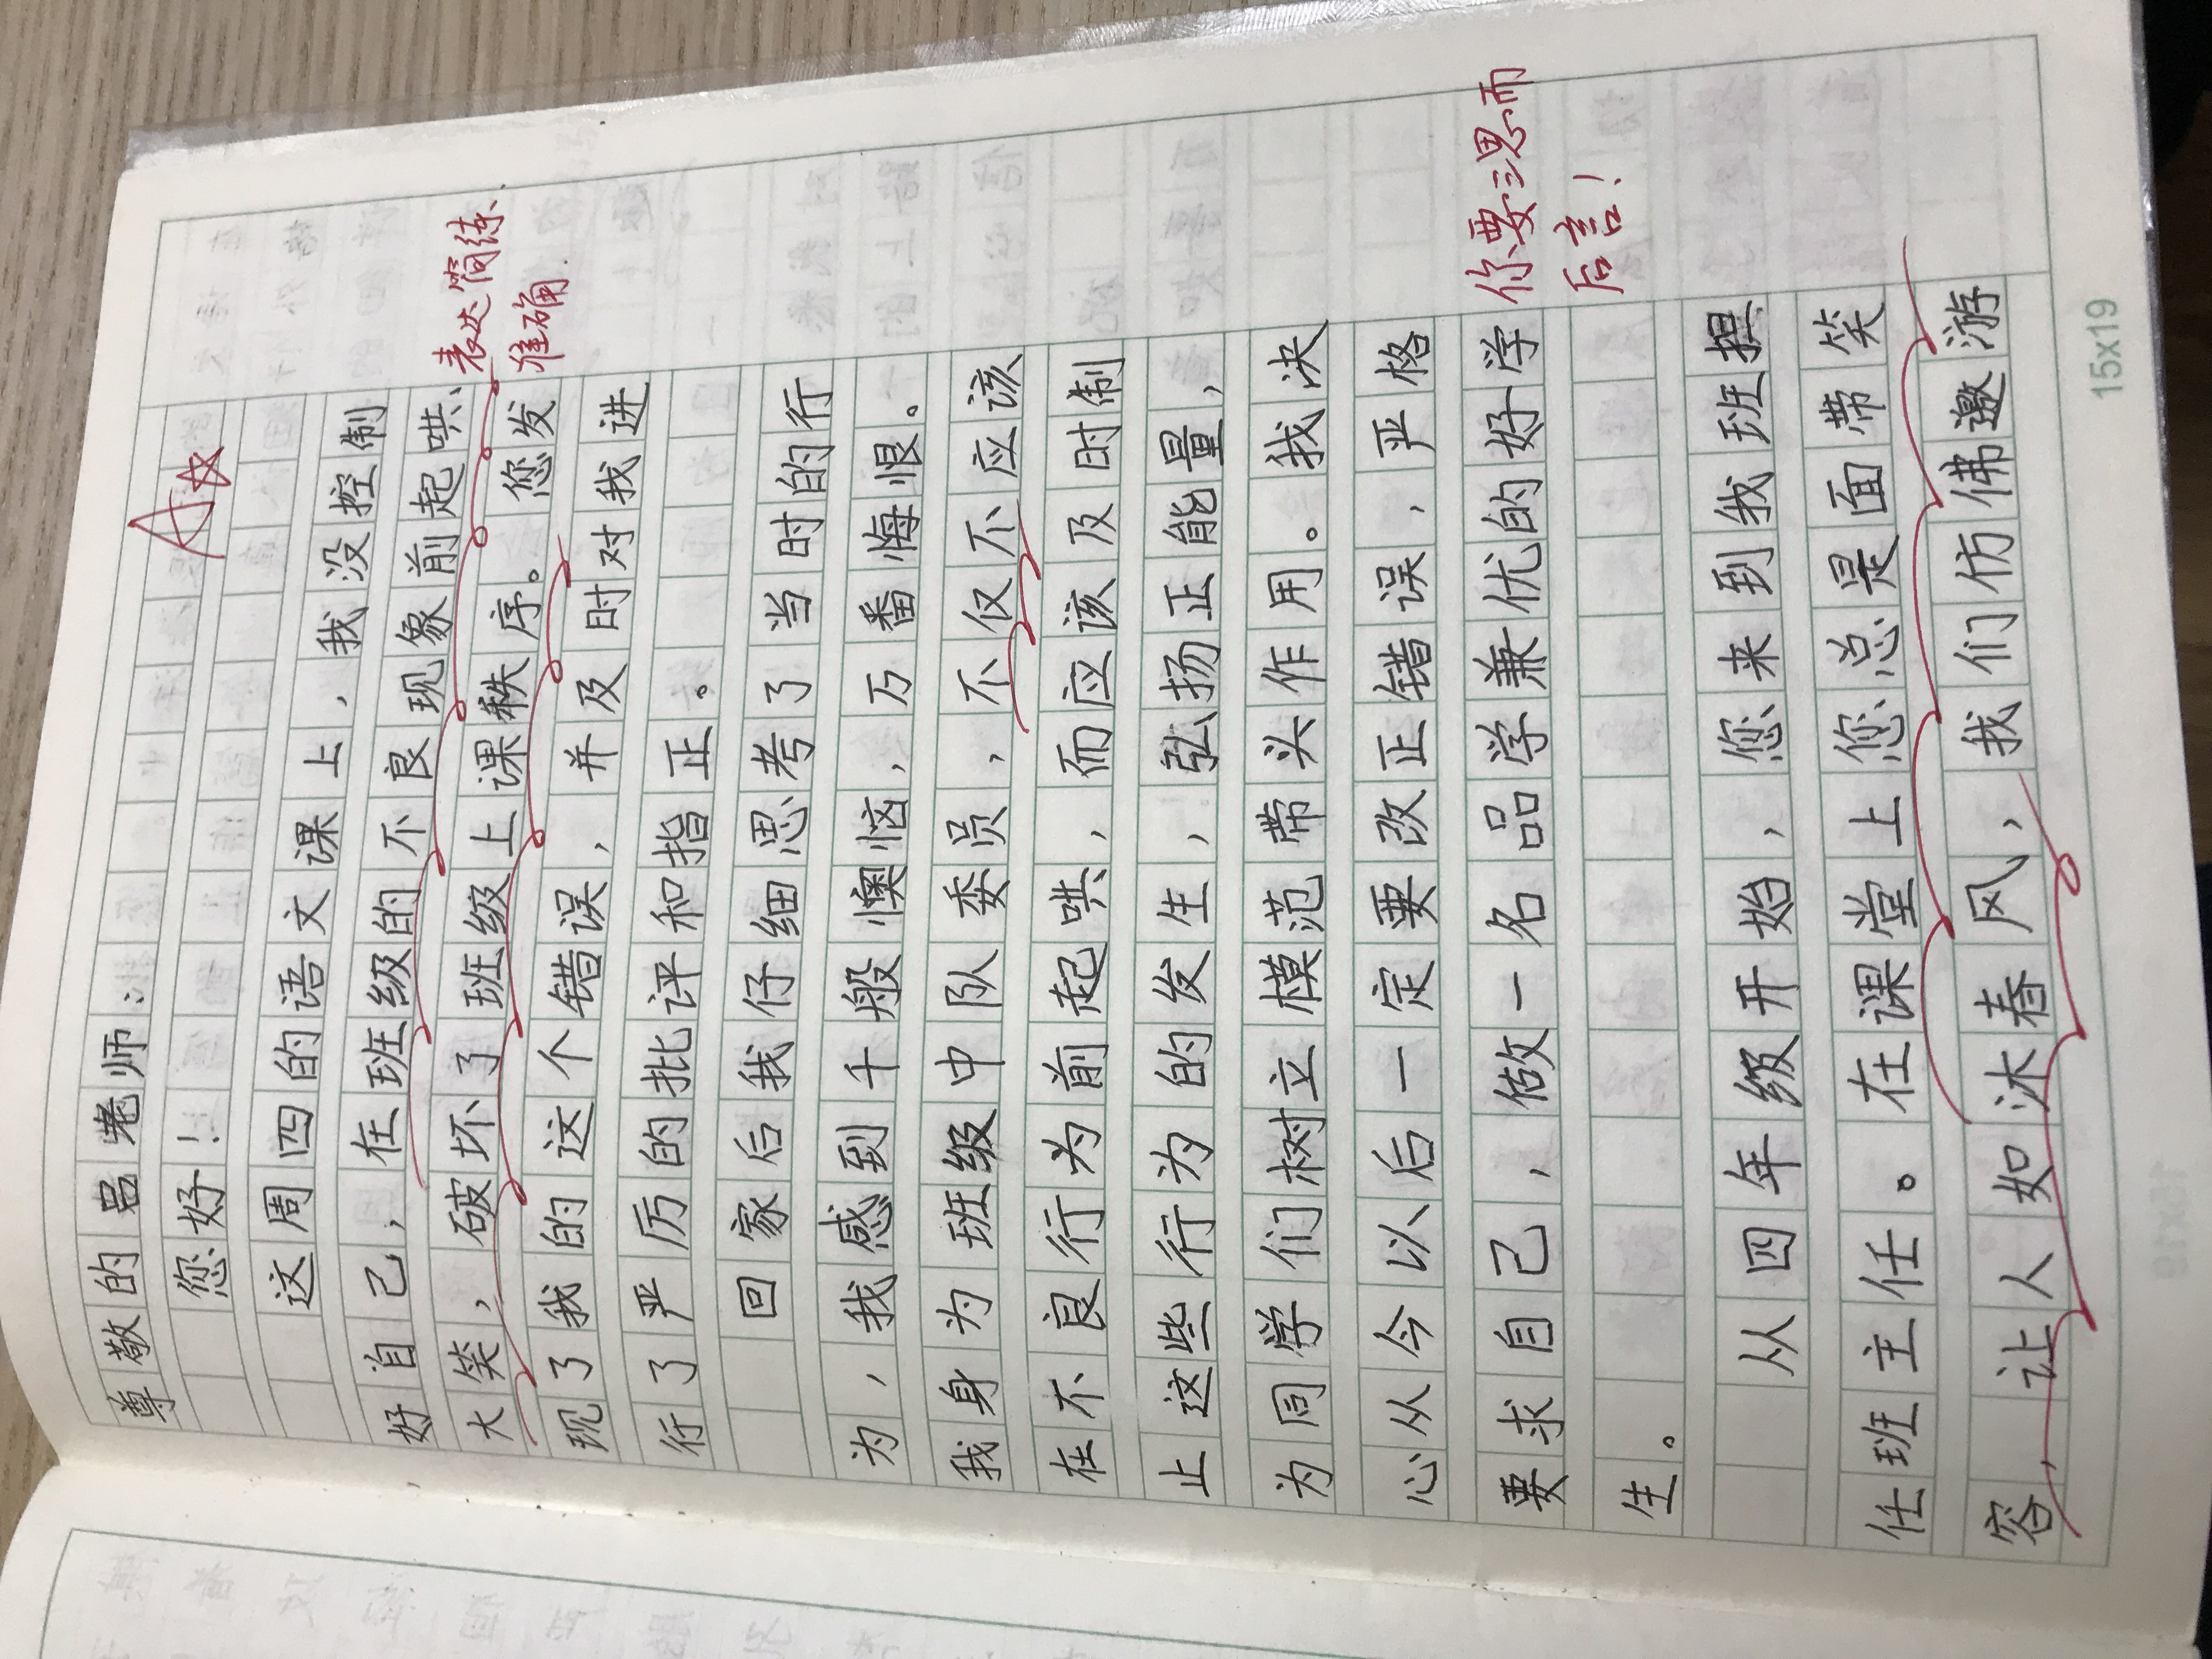 尊敬的吕老师：
A☆
您好！
这周四的语文课上，我没控制
好自己，在班级的不良现象前起哄、
大笑，破坏了班级上课秩序。您发
表达简练、
准确.
现了我的这个错误，并及时对我进
行了严厉的批评和指正。
回家后我仔细思考了当时的行
为，我感到千般懊恼，万番悔恨。
我身为班级中队委员，不仅不应该
在不良行为前起哄，而应该及时制
止这些行为的发生，弘扬正能量，
为同学们树立模范带头作用。我决
心从今以后一定要改正错误，严格
要求自己，做一名品学兼优的好学
你要三思而
后言！
生。
从四年级开始，您来到我班担
任班主任。在课堂上您总是面带笑
容，让人如沐春风，我们仿佛遨游
15x19